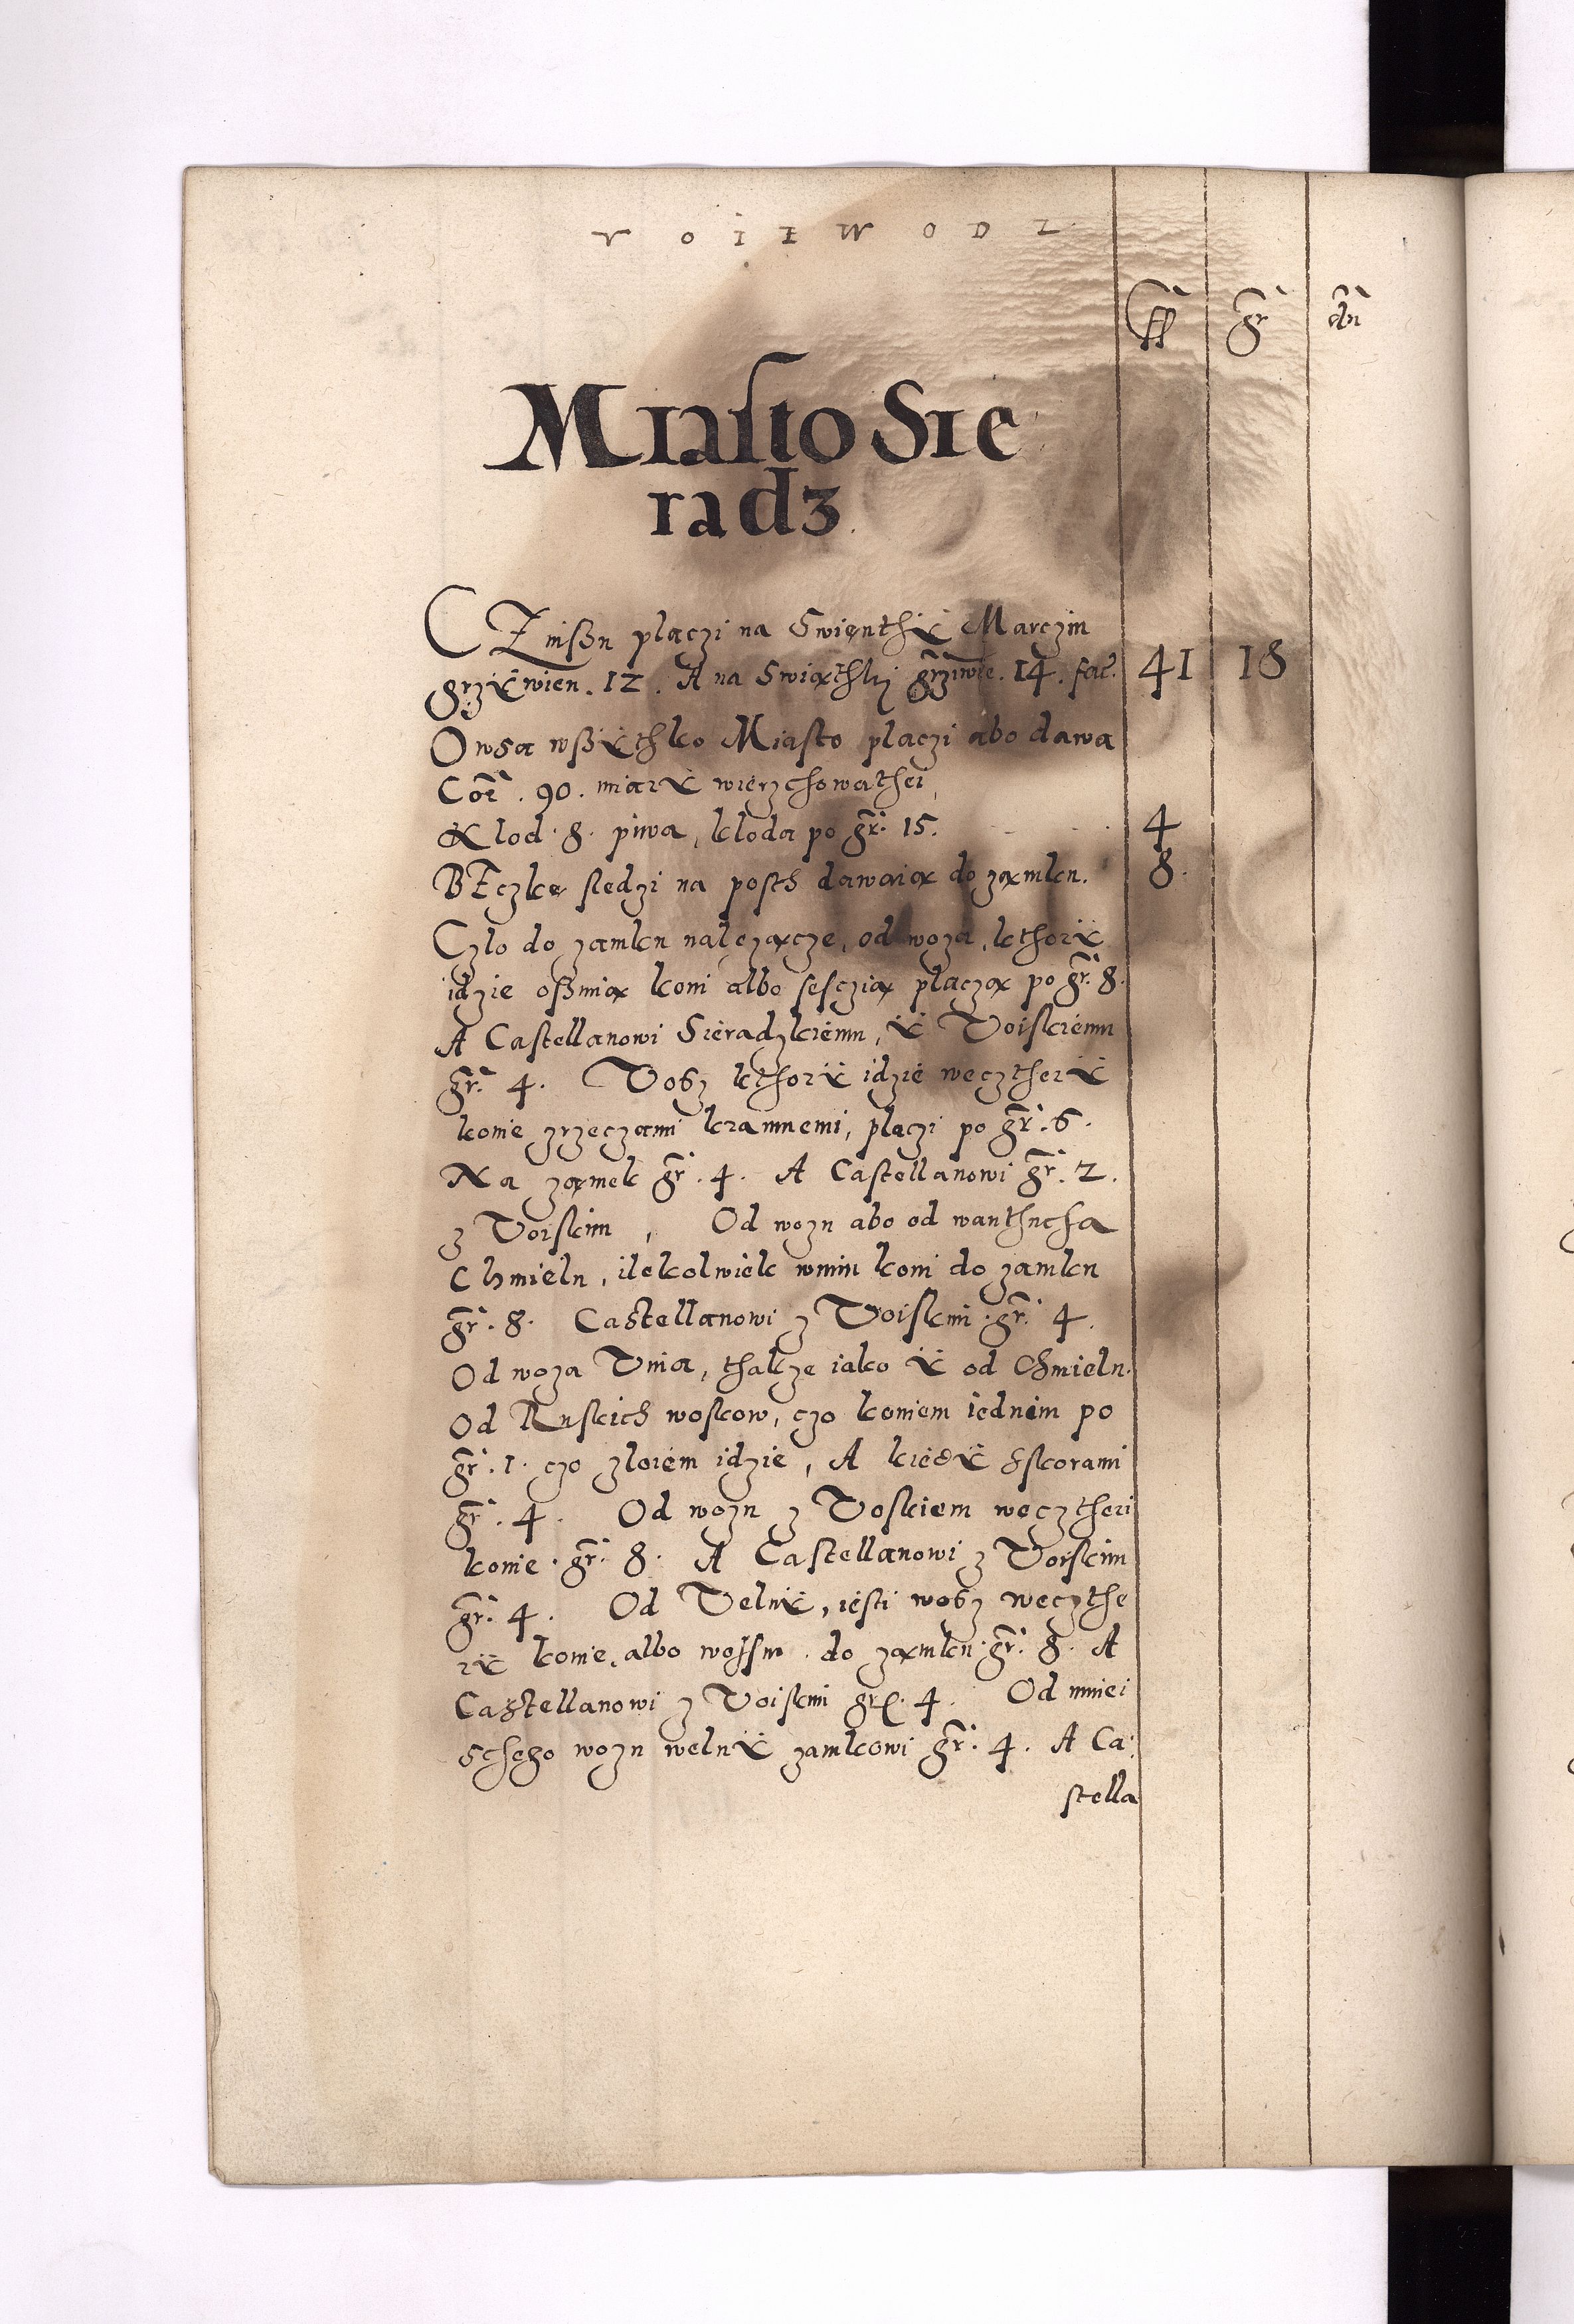 VOIEWODZ
ff gr dn
Miasto Sie
radz
CZinssu placzi na Swienthÿ Marczin
grzÿwien . 12 . A na Swiąthki grziwie . 14 . fac. 41 18
Owsa wssÿthko Miasto placzi abo dawa
Cor . 90 . miarÿ wierzchowathei,
Klod . 8 . piwa, kloda po gr. 15. 4
BEczkę sledzi na posth dawaią do zamku. 8.
Czlo do zamku nalezącze, od woza, kthorÿ
idzie ossmią koni albo sesczią placzą po gr. 8.
A Castellanowi Sieradzkiemu, ÿ Voiskiemu
gr. 4. Vosz kthorÿ idzie wecztherÿ
konie zrzeczami kramnemi, placzi po gr. 6.
Na zamek gr. 4. A Castellanowi gr. 2.
z Voiskim, Od wozu abo od wanthucha
Chmielu, ilekolwiek wnim koni do zamku
gr. 8. Castellanowi z Voiskim gr. 4.
Od woza Vina, thakze iako ÿ od Chmielu.
Od Ruskich woskow, czo koniem iednim po
gr. 1. czo zloiem idzie, A kiedÿ Sskorami
gr. 4. Od wozu z Voskiem wecztheri
konie gr. 8. A Castellanowi z Voiskim
gr. 4. Od Velnÿ, iesti wosz weczthe
rÿ konie, albo wossm do zamku gr. 8. A
Castellanowi z Voiskim gr. 4. Od mniei
schego wozu welnÿ zamkowi gr. 4. A Ca
stella